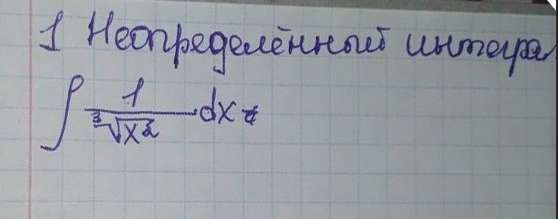 1 Неопределённый интегра
∫ 1/∛x² dx =